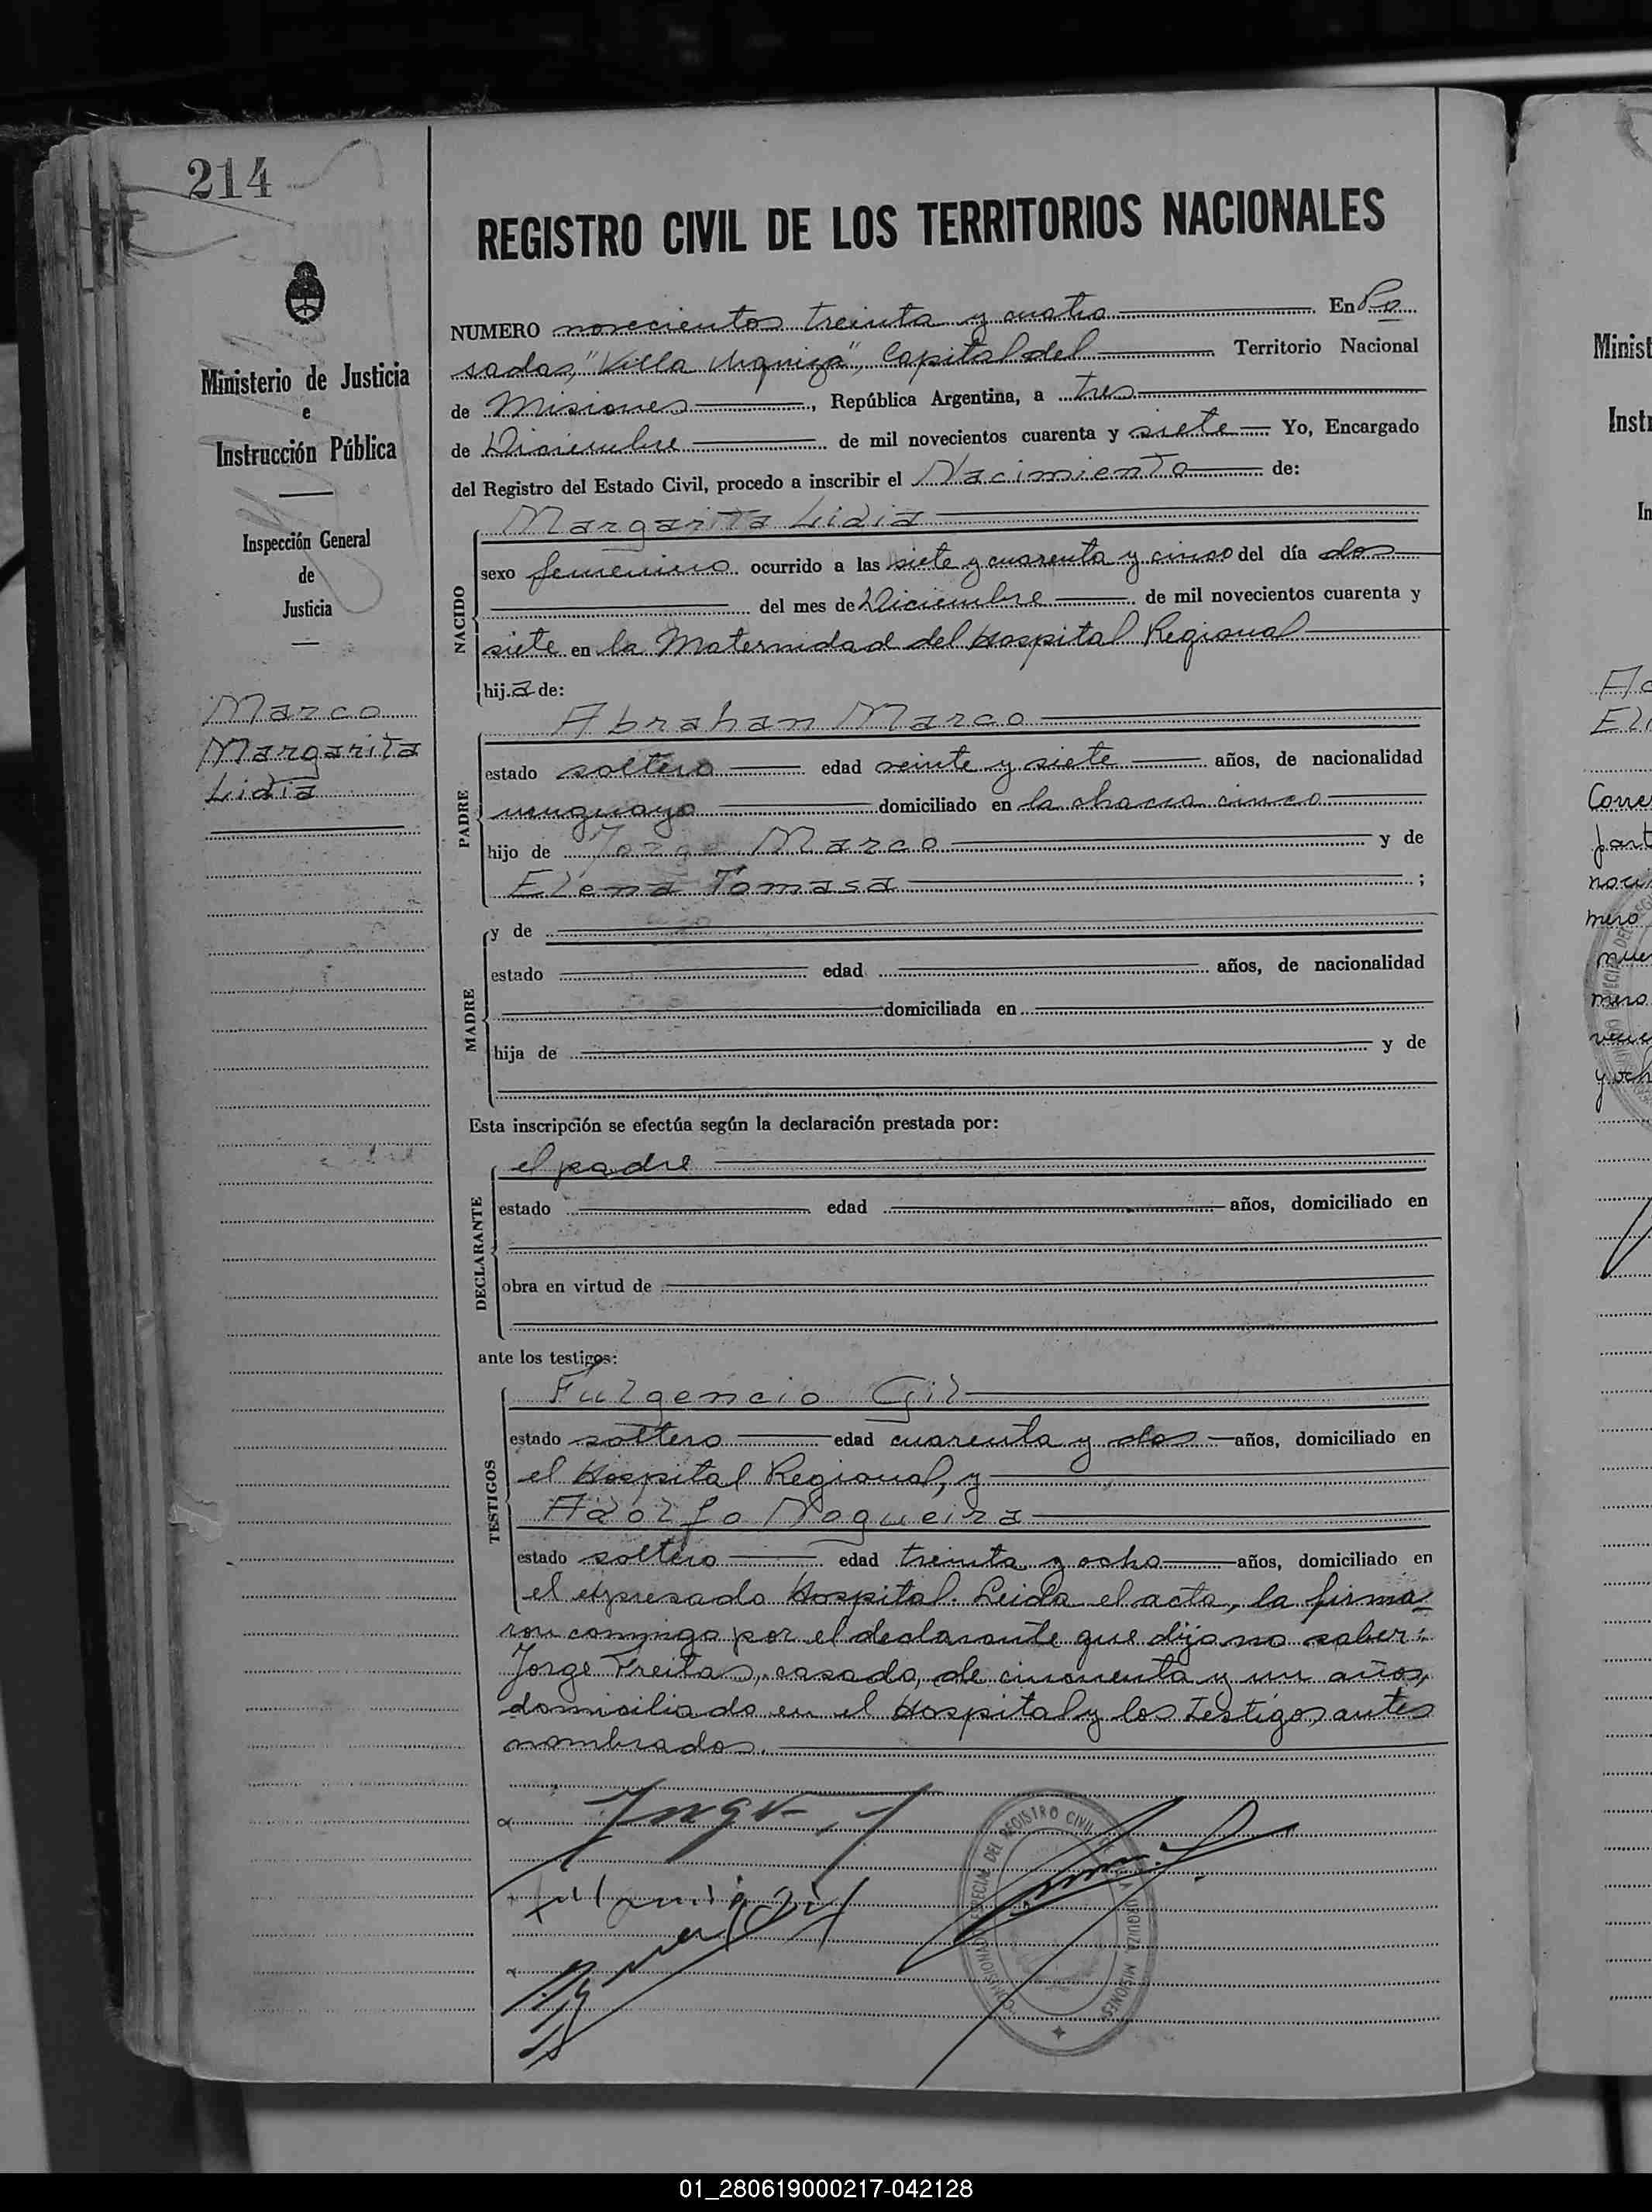 214
REGISTRO CIVIL DE LOS TERRITORIOS NACIONALES
Ministerio de Justicia
e
Instrucción Pública
Inspección General
de
Justicia
Marco
Margarita
Lidia
NUMERO novecientos treinta y cuatro En Po
sadas, "Villa Urquiza", Capital del Territorio Nacional
de Misiones, República Argentina, a tres
de Diciembre de mil novecientos cuarenta y siete Yo, Encargado
del Registro del Estado Civil, procedo a inscribir el Nacimiento de:
NACIDO
Margarita Lidia
sexo femenino ocurrido a las siete y cuarenta y cinco del día dos
del mes de Diciembre de mil novecientos cuarenta y
siete en la Maternidad del Hospital Regional
hija de:
PADRE
Abrahan Marco
estado soltero edad veinte y siete años, de nacionalidad
uruguayo domiciliado en la chacra cinco
hijo de Jorge Marco y de
Elena Tomasa;
MADRE
y de
estado edad años, de nacionalidad
domiciliada en
hija de y de
Esta inscripción se efectúa según la declaración prestada por:
DECLARANTE
el padre
estado edad años, domiciliado en
obra en virtud de
ante los testigos:
TESTIGOS
Fulgencio Gil
estado soltero edad cuarenta y dos años, domiciliado en
el Hospital Regional, y
Adolfo Nogueira
estado soltero edad treinta y ocho años, domiciliado en
el expresado Hospital. Leida el acta, la firma=
ron conmigo por el declarante que dijo no saber:
Jorge Freitas, casado, de cincuenta y un años,
domiciliado en el Hospital y los testigos antes
nombrados.
COMISIONADO ESPECIAL DEL REGISTRO CIVIL URQUIZA MISIONES
Minist
Instr
In
El
parte
mero
mero
y och
01_280619000217-042128